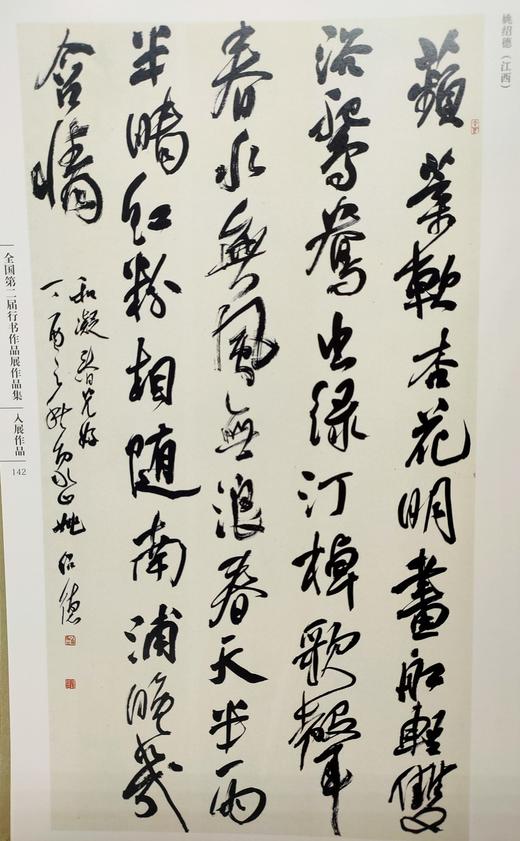 姚绍德（江西）
蘋葉軟杏花明畫船輕雙
浴鴛鴦出绿汀棹歌聲
春水無風無浪春天半雨
半晴红粉相随南浦晚幾
含情
和凝春光好
丁酉之秋 姚绍德
全国第二届行书作品展作品集
入展作品
142